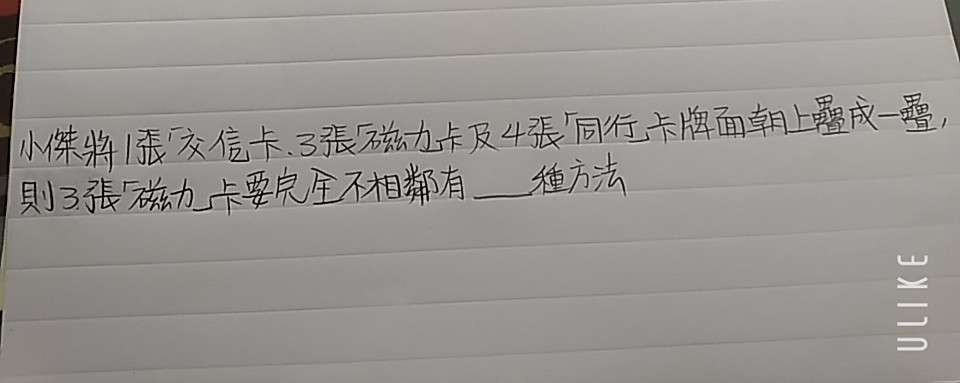 小傑將1張「交信卡、3張「磁力」卡及4張「同行」卡牌面朝上疊成一疊,
則3張「磁力」卡要完全不相鄰有___種方法
ULIKE